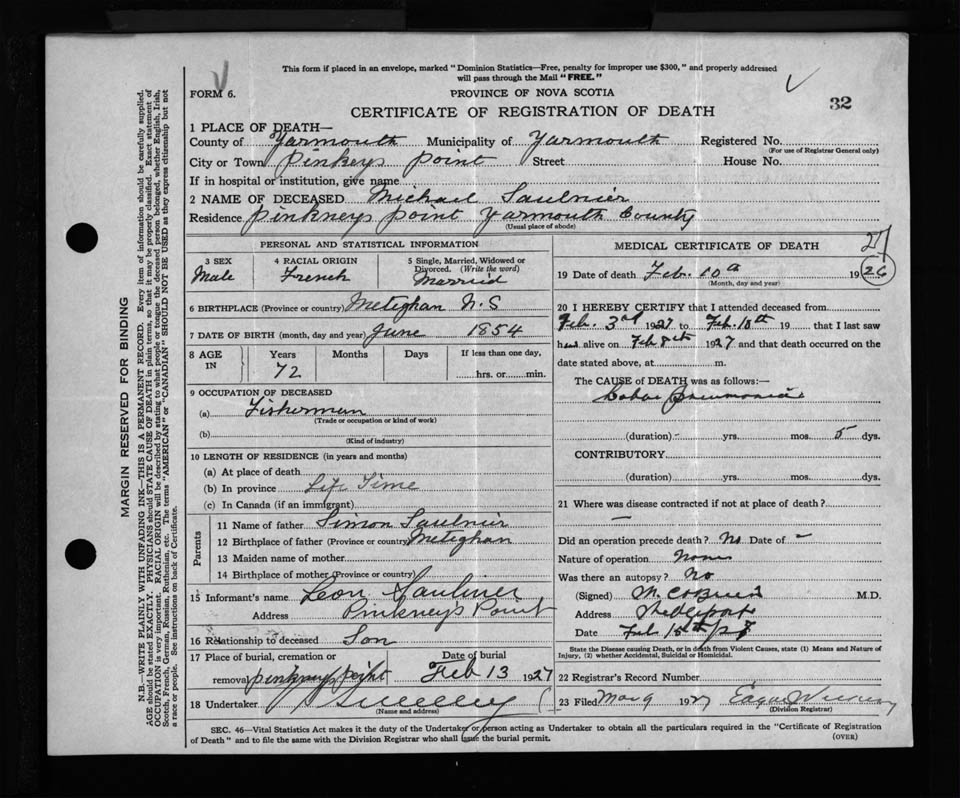 This form if placed in an envelope, marked "Dominion Statistics—Free, penalty for improper use $300," and properly addressed
will pass through the Mail "FREE."
FORM 6.
PROVINCE OF NOVA SCOTIA
32
CERTIFICATE OF REGISTRATION OF DEATH
1 PLACE OF DEATH—
County of Yarmouth Municipality of Yarmouth Registered No.
(For use of Registrar General only)
City or Town Pinkeys Point Street House No.
If in hospital or institution, give name
2 NAME OF DECEASED Michael Saulnier
Residence Pinkneys Point Yarmouth County
(Usual place of abode)
PERSONAL AND STATISTICAL INFORMATION
3 SEX Male
4 RACIAL ORIGIN French
5 Single, Married, Widowed or Divorced. (Write the word) Married
6 BIRTHPLACE (Province or country) Meteghan N.S
7 DATE OF BIRTH (month, day and year) June 1854
8 AGE IN Years 72 Months Days If less than one day, hrs. or min.
9 OCCUPATION OF DECEASED
(a) Fisherman
(Trade or occupation or kind of work)
(b)
(Kind of industry)
10 LENGTH OF RESIDENCE (in years and months)
(a) At place of death
(b) In province Life Time
(c) In Canada (if an immigrant)
Parents
11 Name of father Simon Saulnier
12 Birthplace of father (Province or country) Meteghan
13 Maiden name of mother
14 Birthplace of mother (Province or country)
15 Informant's name Leon Saulnier
Address Pinkney's Point
16 Relationship to deceased Son
17 Place of burial, cremation or Date of burial
removal Feb 13 1927
18 Undertaker
(Name and address)
MEDICAL CERTIFICATE OF DEATH
27
19 Date of death Feb. 10th 1926
(Month, day and year)
20 I HEREBY CERTIFY that I attended deceased from
Feb. 3rd 1927 to Feb. 10th 19 that I last saw
h alive on Feb 8th 1927 and that death occurred on the
date stated above, at m.
The CAUSE of DEATH was as follows:—
Lobar Pneumonia
(duration) - yrs. mos. 5 dys.
CONTRIBUTORY
(duration) yrs. mos. dys.
21 Where was disease contracted if not at place of death?
—
Did an operation precede death? No Date of -
Nature of operation None
Was there an autopsy? No
(Signed) M.D.
Address
Date Feb
State the Disease causing Death, or in death from Violent Causes, state (1) Means and Nature of
Injury, (2) whether Accidental, Suicidal or Homicidal.
22 Registrar's Record Number
23 Filed Mar 9 1927
(Division Registrar)
SEC. 46—Vital Statistics Act makes it the duty of the Undertaker or person acting as Undertaker to obtain all the particulars required in the "Certificate of Registration
of Death" and to file the same with the Division Registrar who shall issue the burial permit.
(OVER)
MARGIN RESERVED FOR BINDING
N.B.—WRITE PLAINLY WITH UNFADING INK—THIS IS A PERMANENT RECORD. Every item of information should be carefully supplied.
AGE should be stated EXACTLY. PHYSICIANS should STATE CAUSE OF DEATH in plain terms, so that it may be properly classified. Exact statement of
OCCUPATION is very important. RACIAL ORIGIN will be described by stating to what people or tongue the deceased person belonged, whether English, Irish,
Scotch, French, German, Russian, Ruthenian, etc. The terms "AMERICAN" or "CANADIAN" SHOULD NOT BE USED as they express citizenship but not
a race or people. See instructions on back of Certificate.